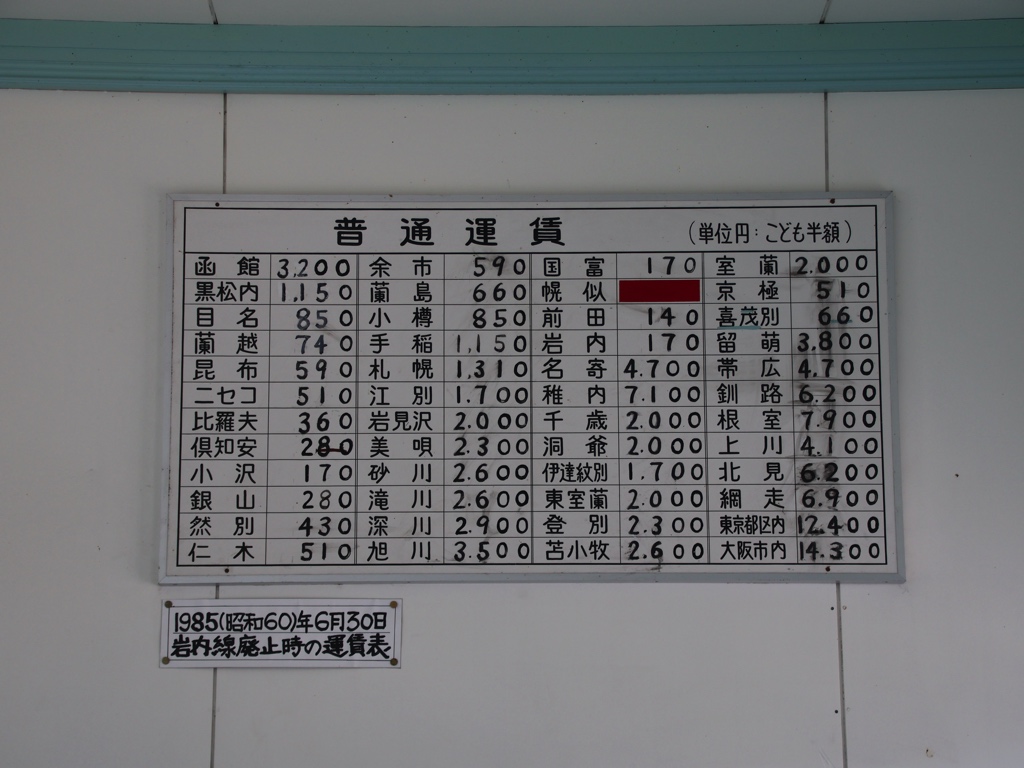 普通運賃 (単位円:こども半額)
函館 3,200 余市 590 国富 170 室蘭 2.000
黒松内 1,150 蘭島 660 幌似 京極 510
目名 850 小樽 850 前田 140 喜茂別 660
蘭越 740 手稲 1,150 岩内 170 留萌 3.800
昆布 590 札幌 1,310 名寄 4.700 帯広 4.700
ニセコ 510 江別 1.700 稚内 7.100 釧路 6.200
比羅夫 360 岩見沢 2.000 千歳 2.000 根室 7.900
倶知安 280 美唄 2.300 洞爺 2.000 上川 4.100
小沢 170 砂川 2.600 伊達紋別 1.700 北見 6.200
銀山 280 滝川 2.600 東室蘭 2.000 網走 6.900
然別 430 深川 2.900 登別 2.300 東京都区内 12.400
仁木 510 旭川 3.500 苫小牧 2.600 大阪市内 14.300
1985(昭和60)年6月30日
岩内線廃止時の運賃表